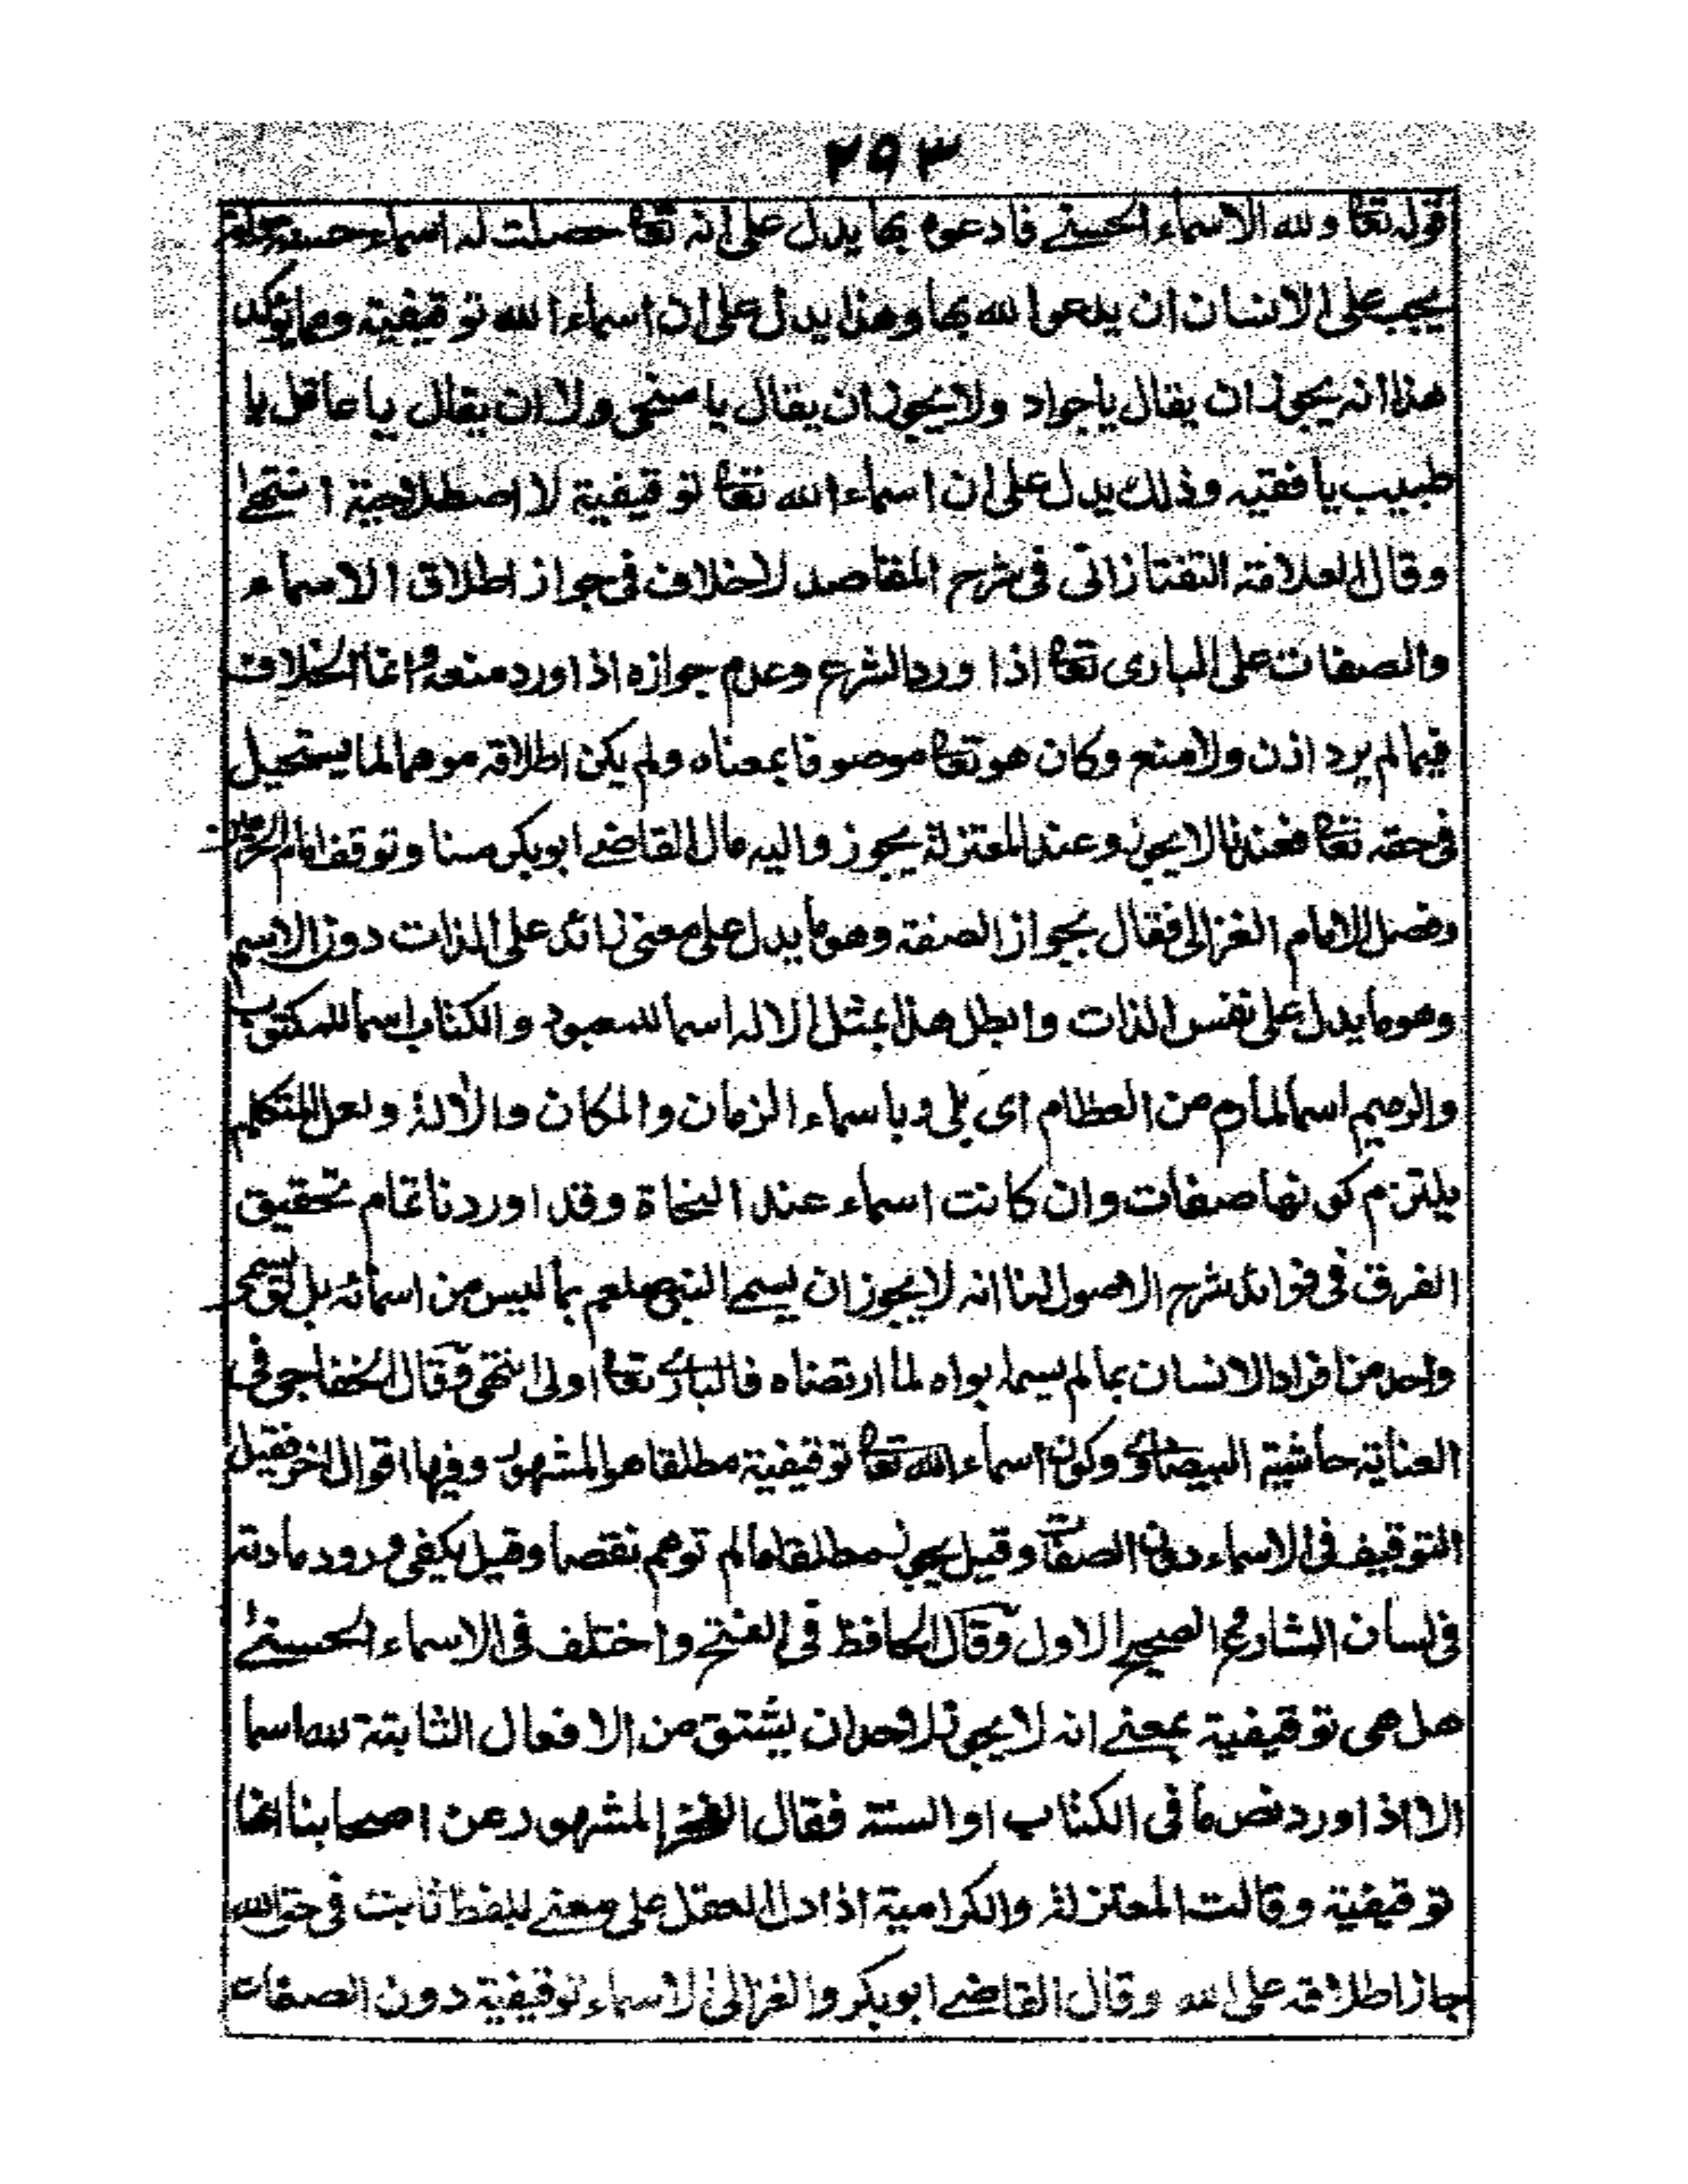 ٢٩٣
قوله تعا ولله الاسماء الحسنے فادعوه بها يدل على انه تعا حصلت له اسماء حسنة
يجب على الانسان ان يدعوا لله بها وهذا يدل على ان اسماء الله توقيفية ومما يؤكد
هذا انه يجوز ان يقال يا جواد ولا يجوز ان يقال يا سخى ولا ان يقال يا عاقل يا
طبيب يا فقيه وذلك يدل على ان اسماء الله تعا توقيفية لا اصطلاحية انتهى
وقال العلامة التفتازانى فى شرح المقاصد لاخلاف فى جواز اطلاق الاسماء
والصفات على البارى تعا اذا ورد الشرع وعدم جوازه اذا ورد منعه وانما الخلاف
فيما لم يرد اذن ولا منع وكان هو تعا موصوفا بمعناه ولم يكن اطلاقه موهما لما يستحيل
فى حقه تعا فعندنا لا يجوز وعند المعتزلة يجوز واليه مال القاضے ابوبكر منا وتوقف امام الحرمين
وفصل الامام الغزالى فقال بجواز الصفة وهو ما يدل على معنى زائد على الذات دون الاسم
وهو ما يدل على نفس الذات وابطل هذا بمثل الاله اسما للمعبود والكتاب اسما للمكتوب
والرميم اسما لما رم من العظام اى بلى وباسماء الزمان والمكان والآلة ولعل المتكلم
يلتزم كونها صفات وان كانت اسماء عند النحاة وقد اوردنا تمام تحقيق
الفرق فى فوائد شرح الاصول لنا انه لا يجوز ان يسمے النبى صلعم بما ليس من اسمائه بل لو سمى
واحد من افراد الانسان بما لم يسمه ابواه لما ارتضاه فالبارى تعا اولى انتهى وقال الخفاجى فى
العناية حاشية البيضاوى وكون اسماء الله تعا توقيفية مطلقا هو المشهور وفيها اقوال اخر فقيل
التوقيف فى الاسماء دون الصفات وقيل يجوز مطلقا ما لم توهم نقصا وقيل يكفى ورود مادته
فى لسان الشارع والصحيح الاول وقال الحافظ فى الفتح واختلف فى الاسماء الحسنےٰ
هل هى توقيفية بمعنے انه لا يجوز لاحد ان يشتق من الافعال الثابتة لله اسما
الا اذا ورد نص ما فى الكتاب او السنة فقال الفخر المشهور عن اصحابنا انها
توقيفية وقالت المعتزلة والكرامية اذا دل العقل على معنے للفظ ثابت فى حق الله
جاز اطلاقه على الله وقال القاضے ابوبكر والغزالى الاسماء توقيفية دون الصفات